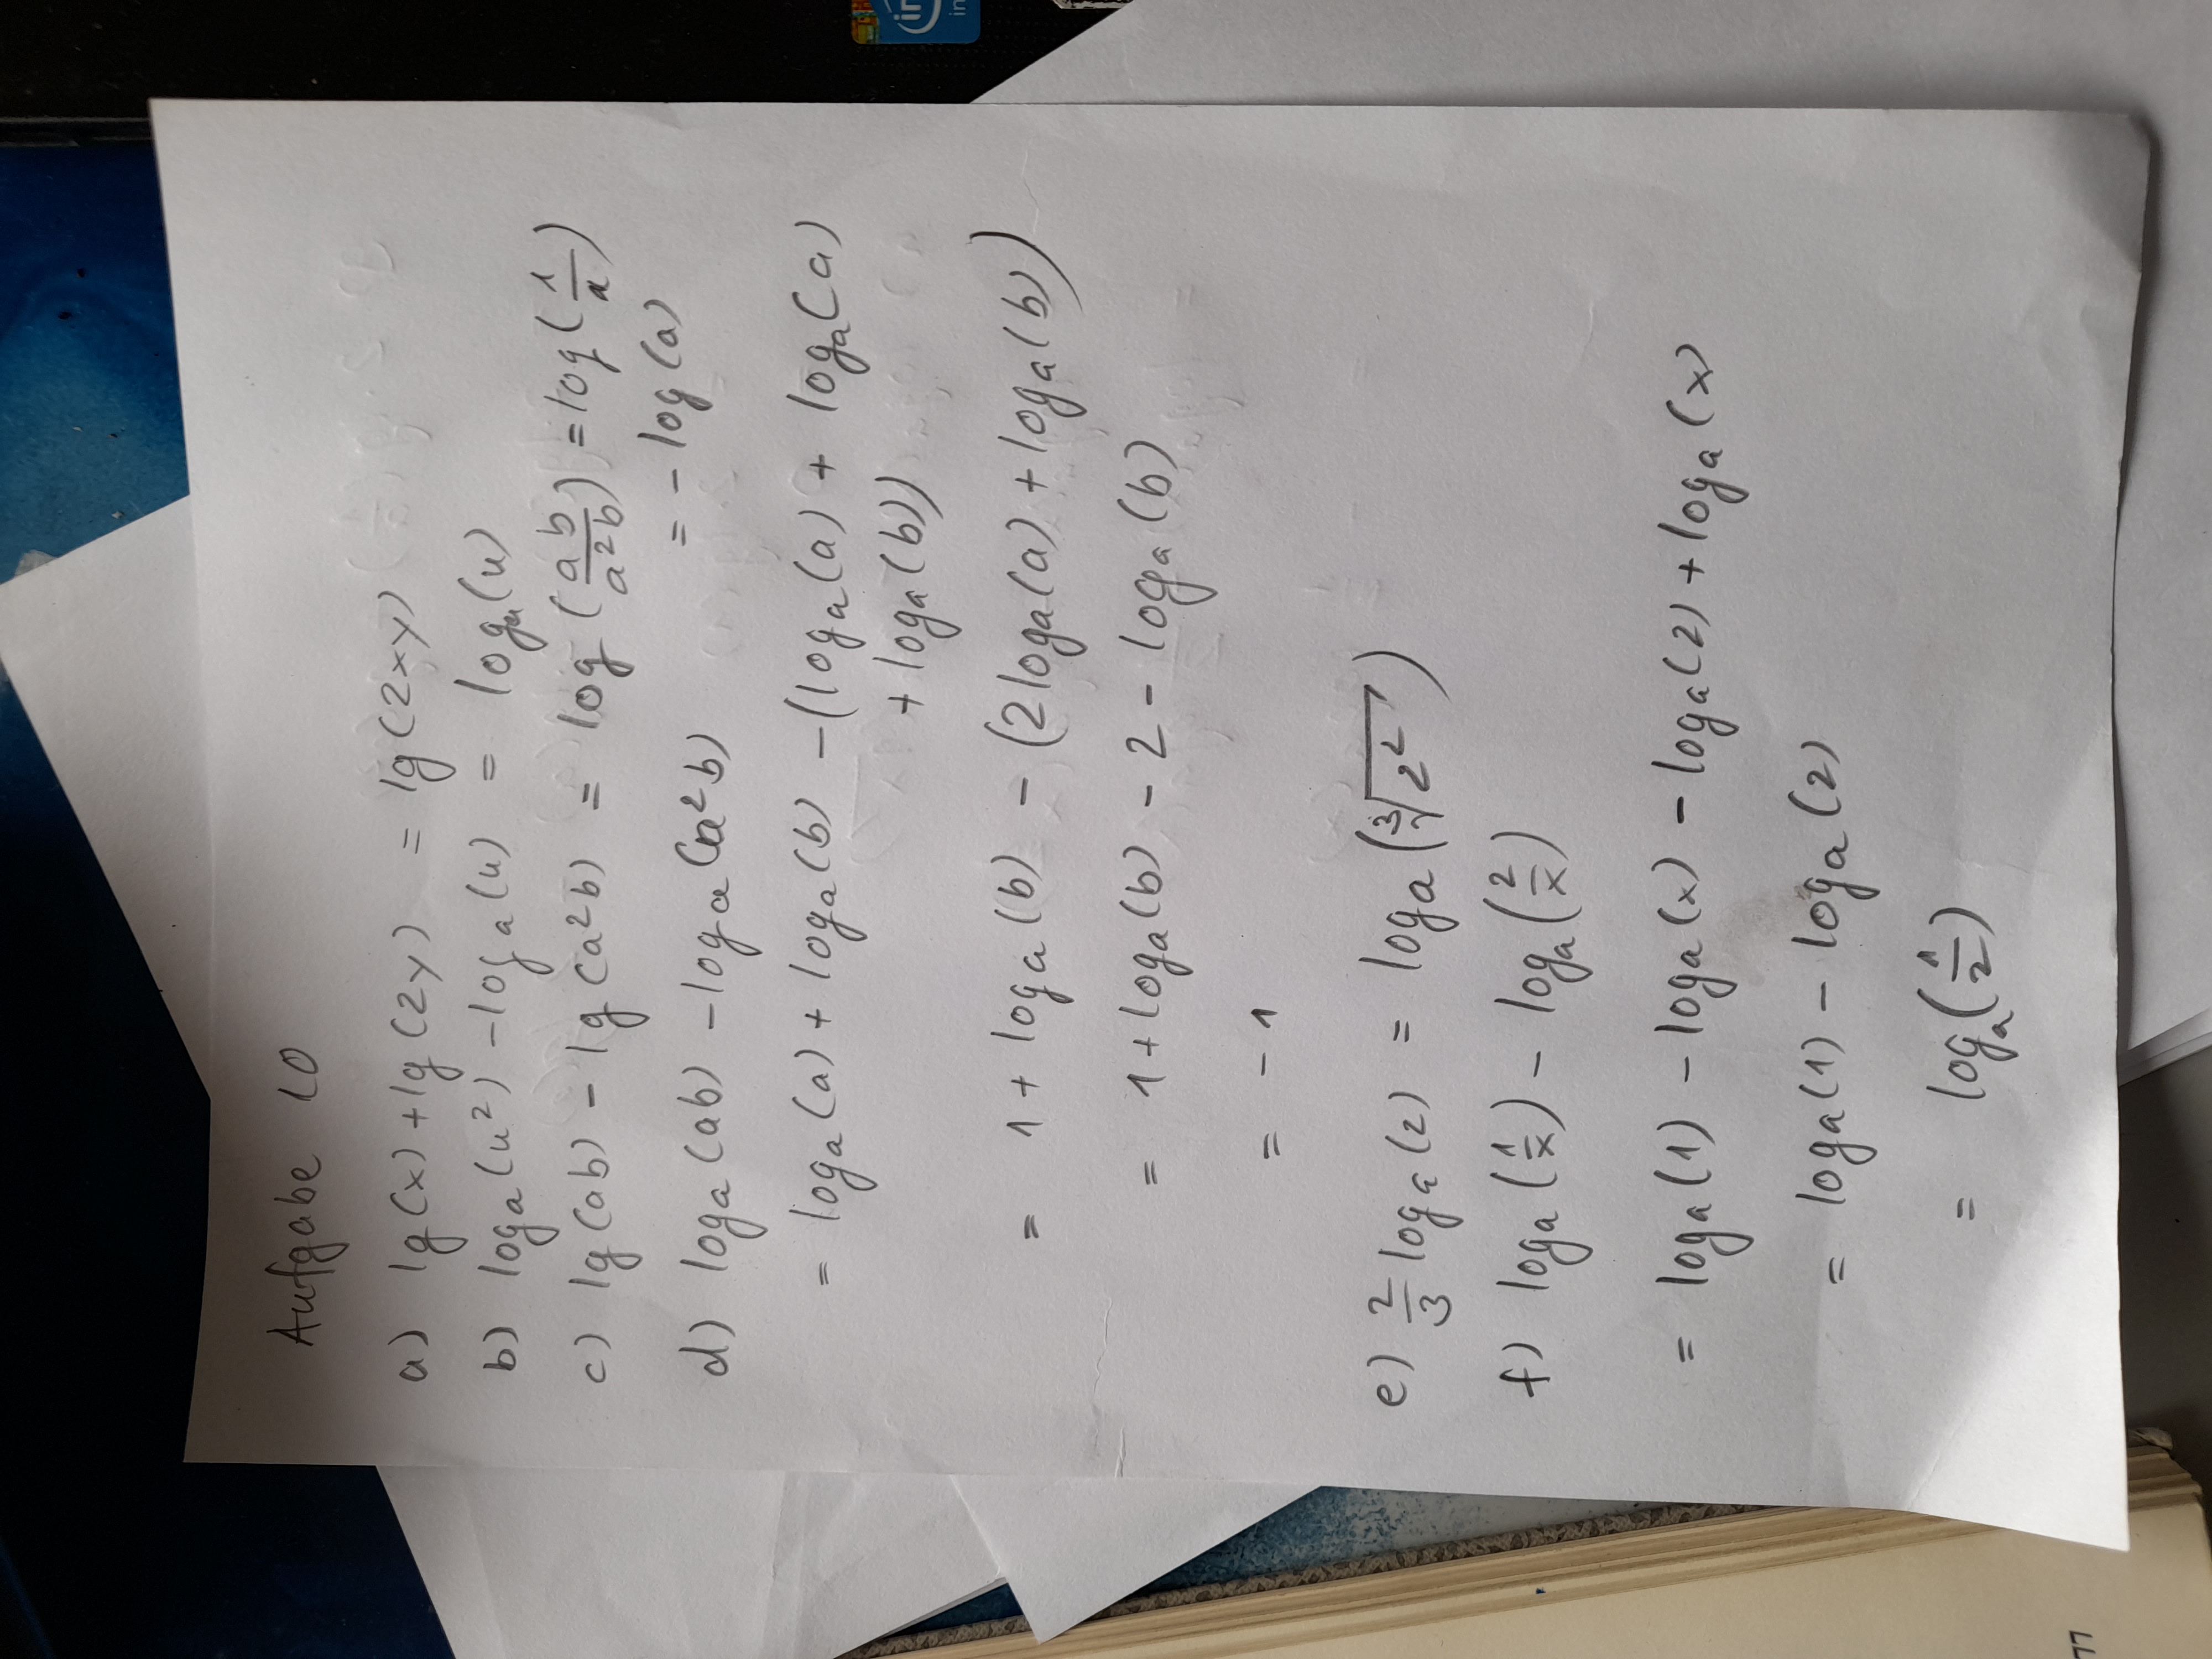 Aufgabe 10
a) lg(x) + lg(2y) = lg(2xy)
b) logₐ(u²) - logₐ(u) = logₐ(u)
c) lg(ab) - lg(a²b) = log(ab/a²b) = log(1/a)
= - log(a)
d) logₐ(ab) - logₐ(a²b)
= logₐ(a) + logₐ(b) - (logₐ(a) + logₐ(a)
+ logₐ(b))
= 1 + logₐ(b) - (2logₐ(a) + logₐ(b))
= 1 + logₐ(b) - 2 - logₐ(b)
= - 1
e) 2/3 logₐ(2) = logₐ(∛2²)
f) logₐ(1/x) - logₐ(2/x)
= logₐ(1) - logₐ(x) - logₐ(2) + logₐ(x)
= logₐ(1) - logₐ(2)
= logₐ(1/2)
77